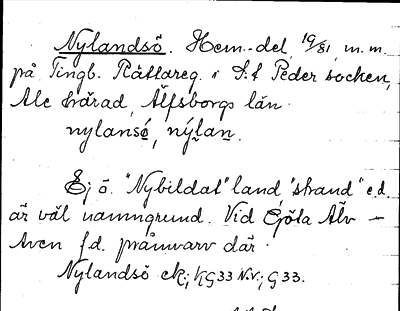 Nylandsö. Hem.-del 19/81, m.m.
på Tingb. Rättareg. i S:t Peder socken,
Ale härad, Älfsborgs län.
nylansǫ́, nýlan.
Ej ö. "Nybildat" land "strand" e.d.
är väl namngrund. Vid Göta Älv –
Även f.d. pråmvarv där.
Nylandsö ek; KG33 N.V.; G33.